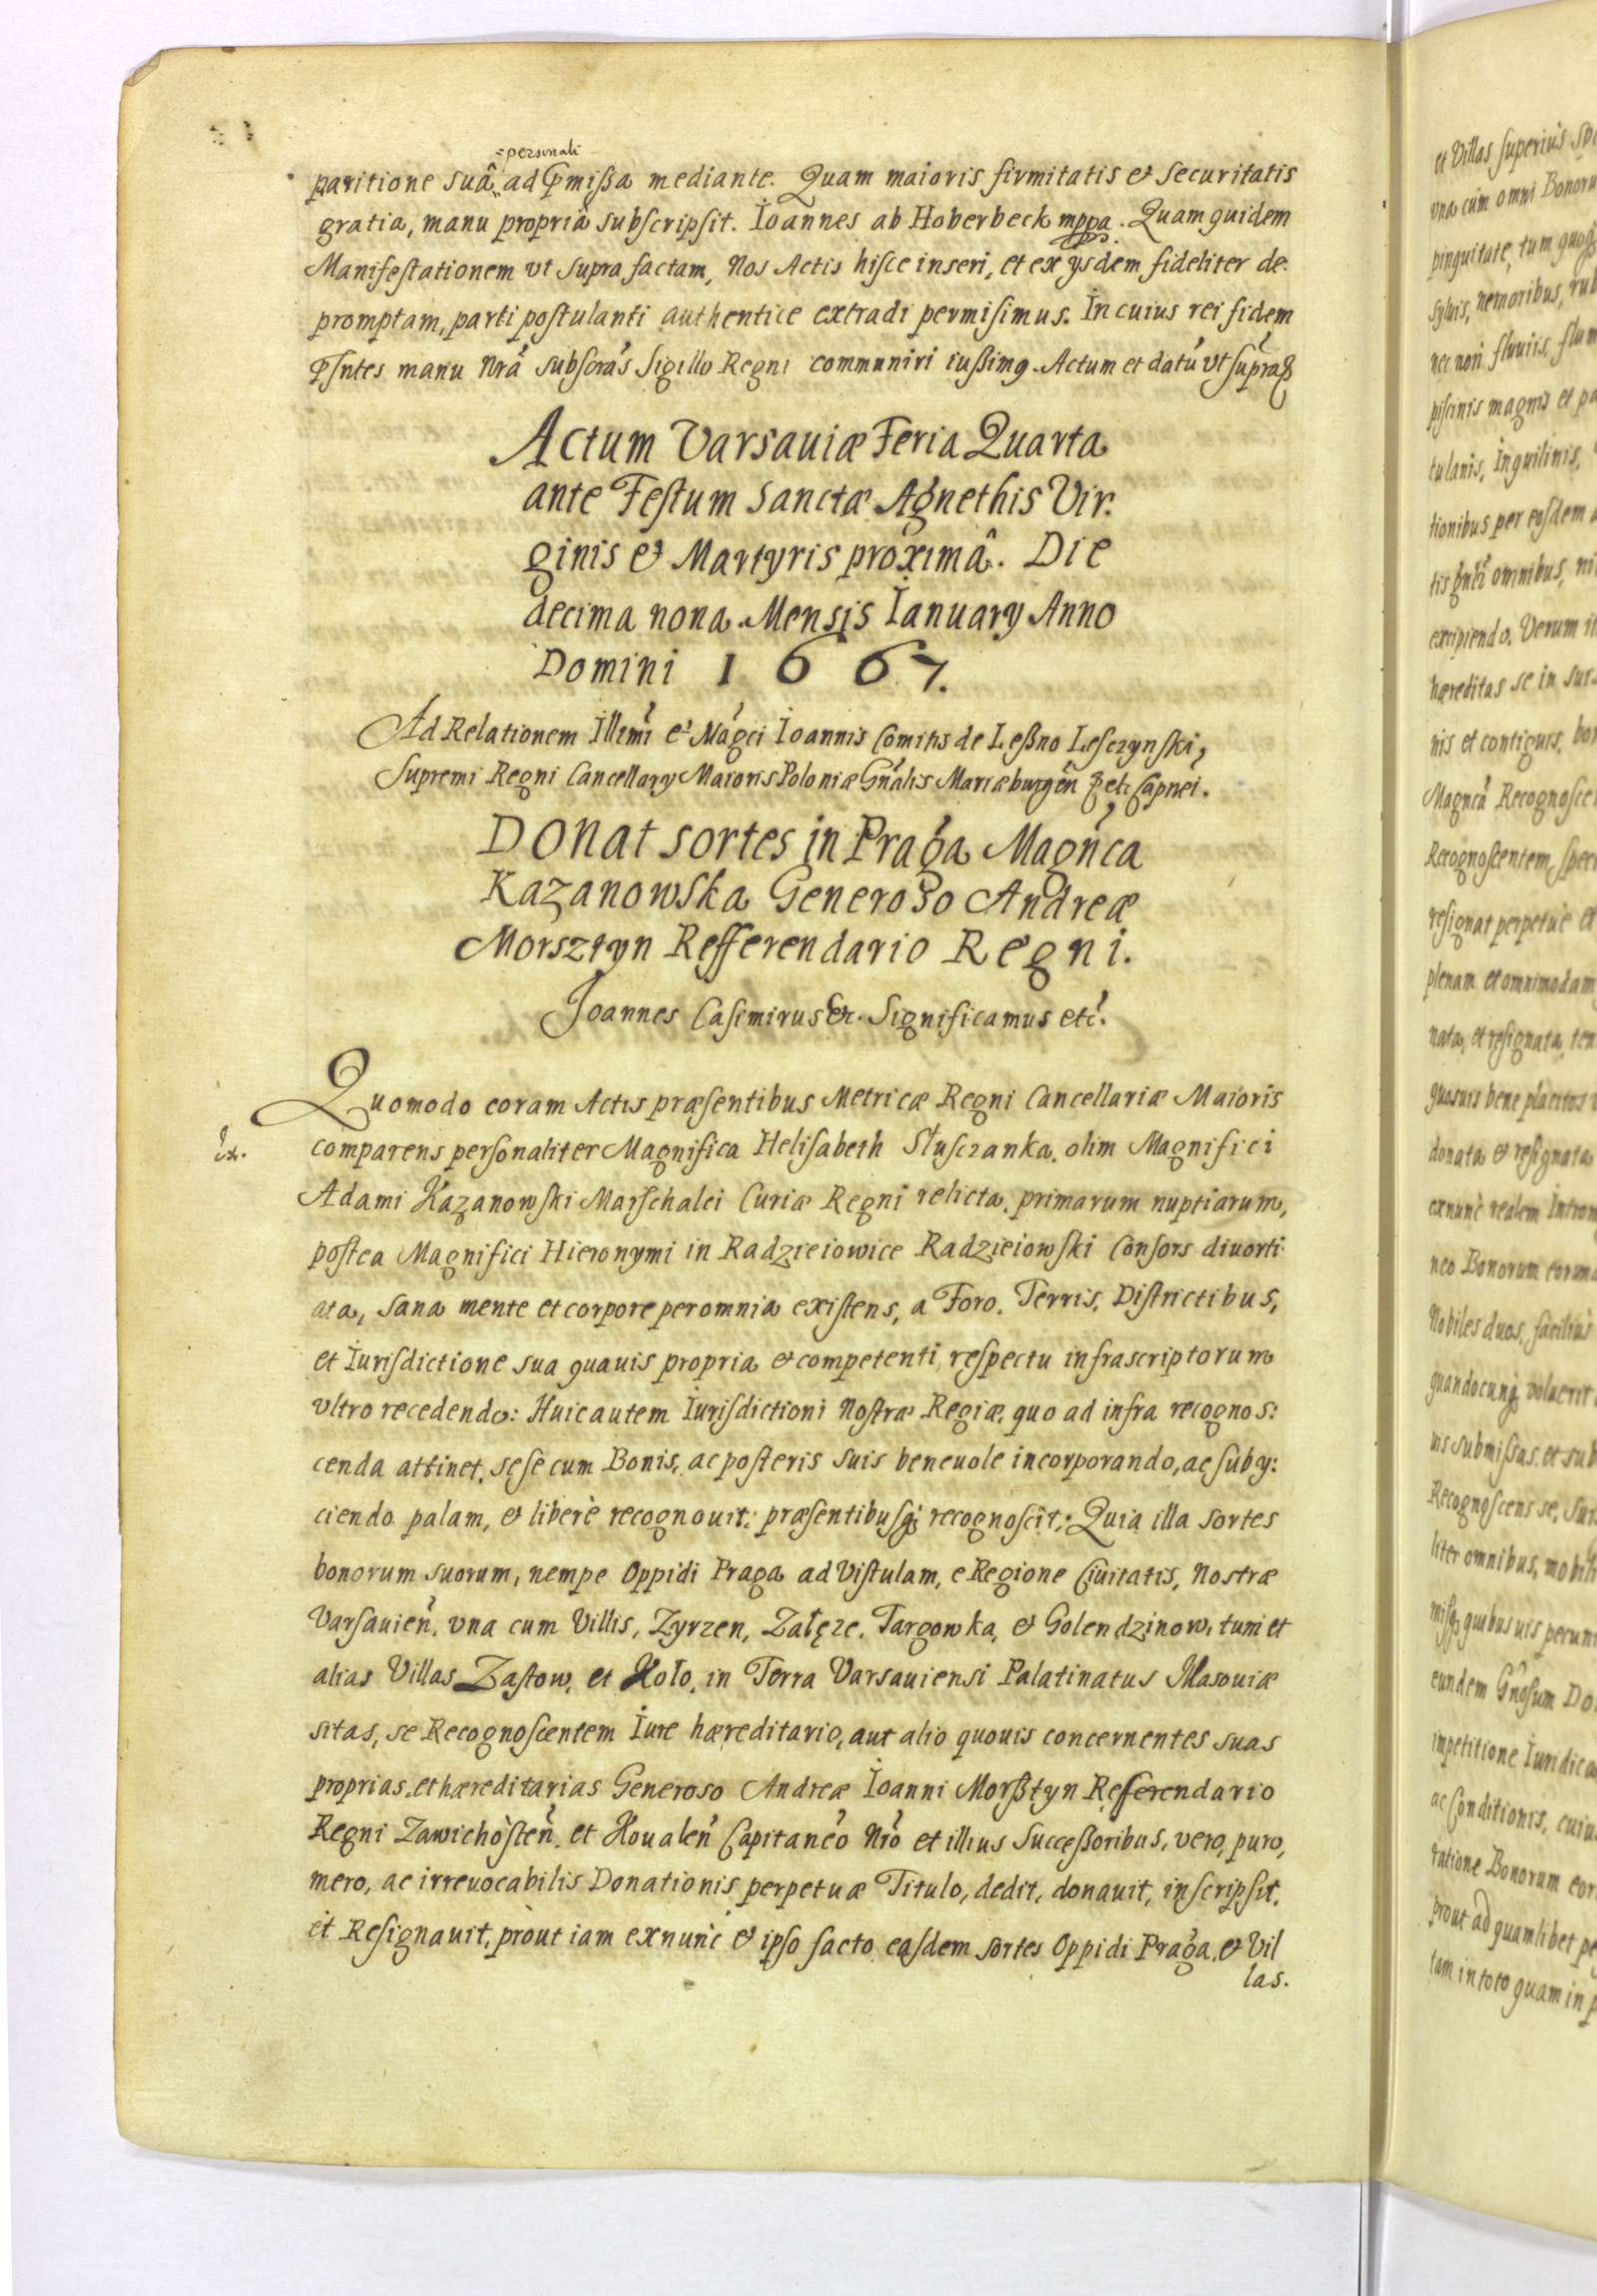 =personali
paritione suâ ad Pmissa mediante. Quam maioris firmitatis et securitatis
gratia, manu propriâ subscripsit. Ioannes ab Hoberbeck mppa. Quam quidem
Manifestationem vt supra factam, Nos Actis hisce inseri, et ex ysdem fideliter de
promptam, parti postulanti authentice extradi permisimus. In cuius rei fidem
Psntes manu nrã subscrãs Sigillo Regni communiri iussimq. Actum et datũ vt supra
Actum Varsauiæ Feria Quarta
ante Festum Sanctæ Agnethis Vir:
ginis et Martyris proximâ. Die
decima nona Mensis Ianuary Anno
Domini 1667.
Ad Relationem Illmi et Magci Ioannis Comitis de Leßno Lesczynski,
Supremi Regni Cancellary Maioris Poloniæ Gnalis Mariæburgen etc Capnei.
Donat sortes in Praga Magnca
Kazanowska Generoso Andreæ
Morsztyn Refferendario Regni.
Joannes Casimirus &c. Significamus etc.
Quomodo coram Actis præsentibus Metricæ Regni Cancellariæ Maioris
comparens personaliter Magnifica Helisabeth Słusczanka, olim Magnifici
Adami Kazanowski Marschalci Curiæ Regni relicta, primarum nuptiarum,
postea Magnifici Hieronymi in Radzieiowice Radzieiowski Consors diuorti
ata, sana mente et corpore per omnia existens, a Foro, Terris, Districtibus,
et Iurisdictione sua quauis propria et competenti, respectu infrascriptorum
vltro recedendo: Huic autem Iurisdictioni Nostræ Regiæ, quo ad infra recognos:
cenda attinet, sese cum Bonis, ac posteris suis beneuole incorporando, ac suby:
ciendo palam, et liberè recognouit; præsentibusq; recognoscit; Quia illa sortes
bonorum suorum, nempe Oppidi Praga ad Vistulam, e Regione Ciuitatis, Nostræ
Varsauien, vna cum Villis, Zyrzen, Załęze, Targowka, et Golendzinow, tum et
alias Villas Zastow, et Koło, in Terra Varsauiensi Palatinatus Masouiæ
sitas, se Recognoscentem Iure hæreditario, aut alio quouis concernentes suas
proprias, et hæreditarias Generoso Andreæ Ioanni Morßtyn Refferendario
Regni Zawichosten, et Koualen Capitaneo Nro et illius Successoribus, vero, puro,
mero, ac irreuocabilis Donationis perpetuæ Titulo, dedit, donauit, inscripsit,
et Resignauit, pròut iam exnunc et ipso facto easdem sortes Oppidi Praga, et Vil
las.
et Villas superius
vna cum omni Bonoru
pinguitate, tum quoq
syluis, nemoribus, rub
nec non fluuiis, flum
piscinis magnis et pa
tulanis, Inquilinis,
tionibus per eosdem
tis omnibus, ni
excipiendo. Verum it
hæreditas se in suis
nis et contiguis, bon
Magncã Recognosce
Recognoscentem, spec
resignat perpetuè et
plenam et omnimodam
nata, et resignata, ten
quosuis bene placitos
donata et resignata
exnunc realem Introm
neo Bonorum eorund
Nobiles duos, facilius
quandocunq voluerit
submissus et sub
Recognoscens se, suis
liter omnibus, mobili
misq quibusuis pecuni
eundem Gnosum Do
impetitione Iuridica
ac Conditionis, cuius
ratione Bonorum eor
prout ad quamlibet pe
tam in toto quam in p